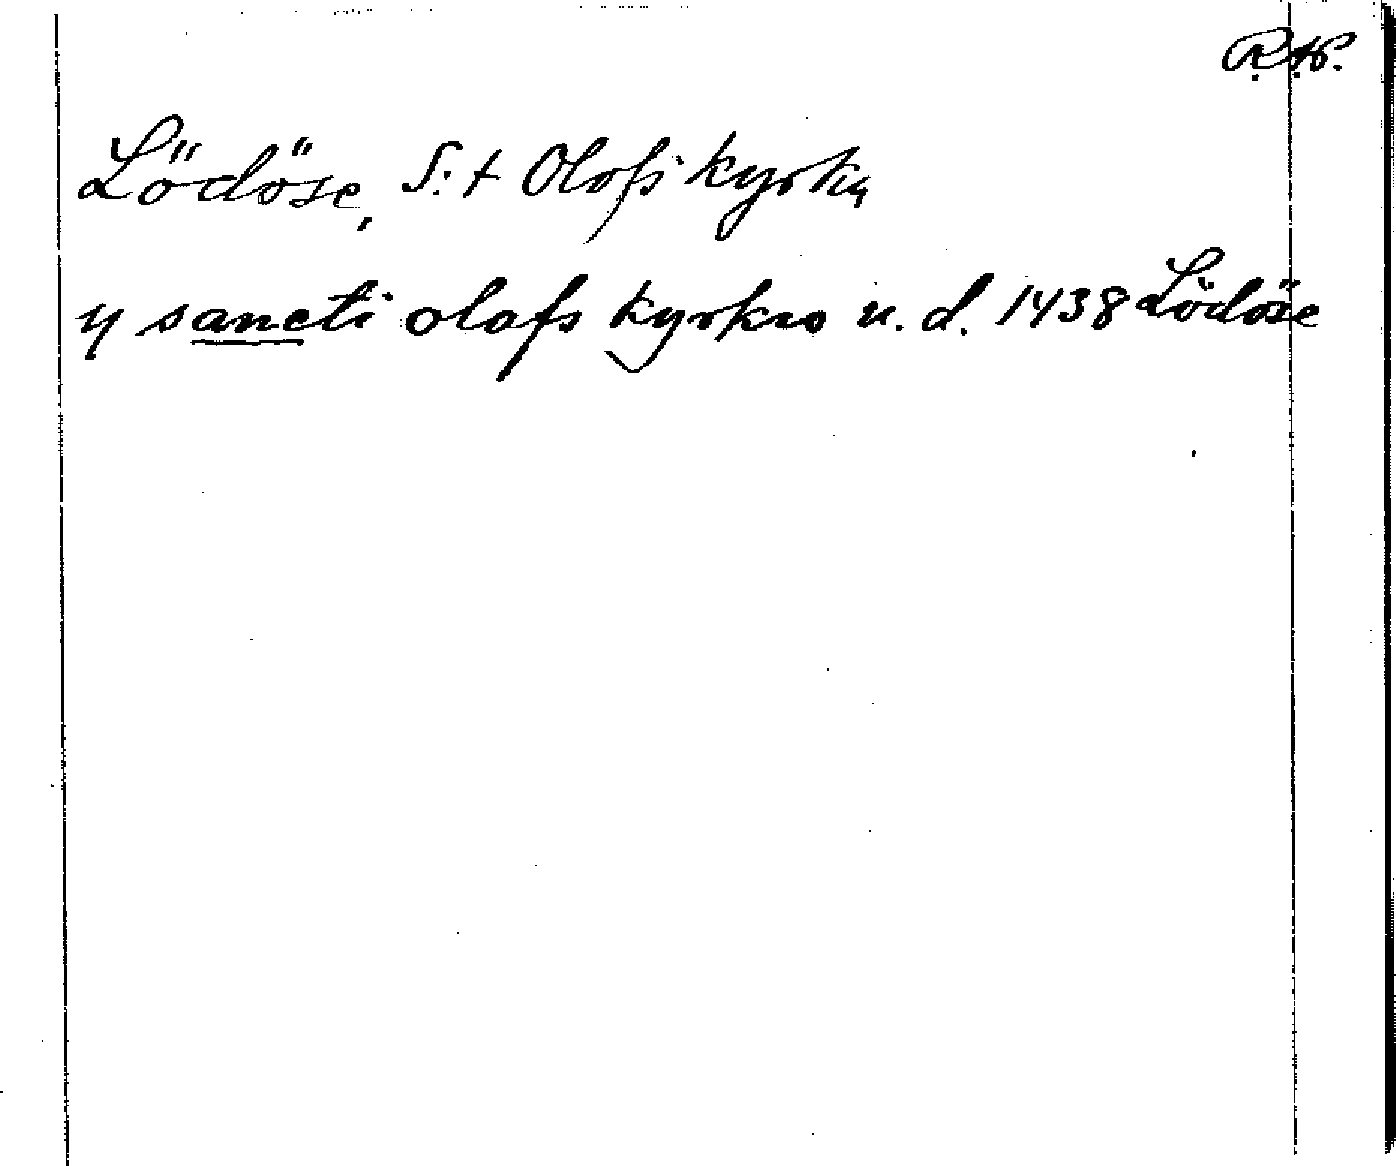 R.A.
Lödöse, S:t Olofs kyrka
y sancti olafs kyrkio u. d. 1438 Lödöse